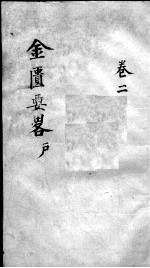 卷二
金匱要畧